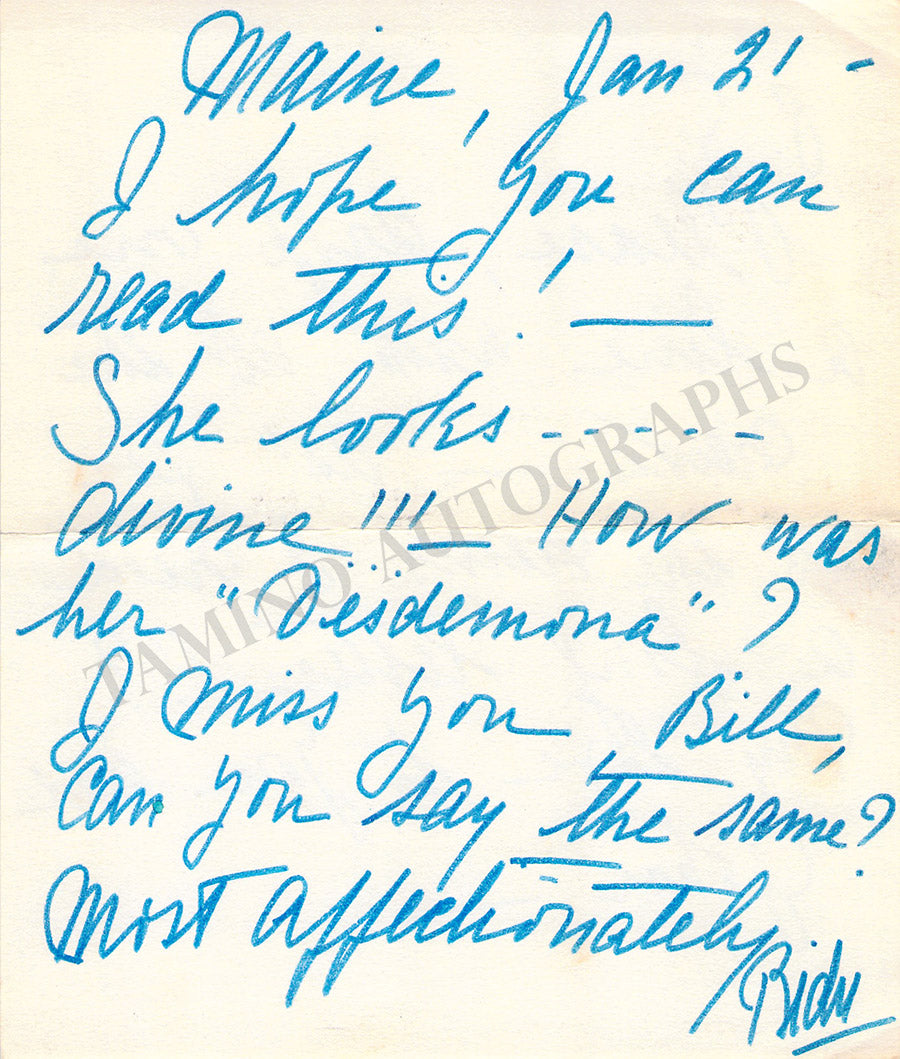 Maine, Jan 21 -
I hope you can
read this! —
She looks - - - - -
divine!!! — How was
her "Desdemona"?
I miss you, Bill,
can you say the same?
Most affectionately
Bidu
TAMINO AUTOGRAPHS